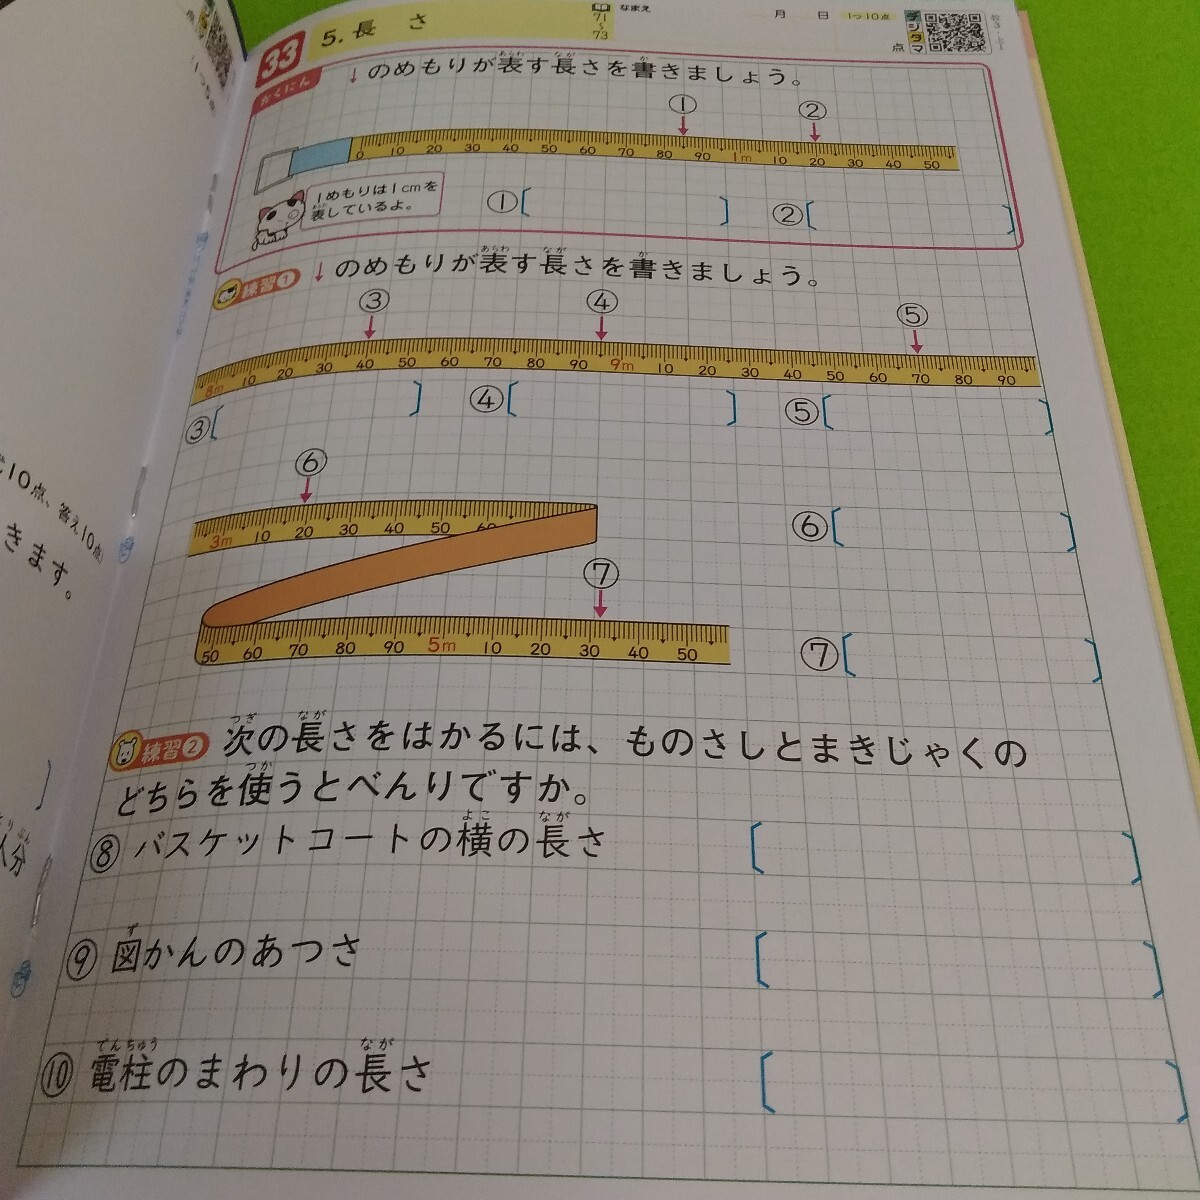 33
5.長さ
71
〜
73
なまえ
月 日
1つ10点
デジタマ
点
かくにん
↓のめもりが表す長さを書きましょう。
あらわ なが か
① ②
0 10 20 30 40 50 60 70 80 90 1m 10 20 30 40 50
1めもりは1cmを
表しているよ。
①[ ] ②[ ]
練習❶ ↓のめもりが表す長さを書きましょう。
あらわ なが か
③ ④ ⑤
8m 10 20 30 40 50 60 70 80 90 9m 10 20 30 40 50 60 70 80 90
③[ ] ④[ ] ⑤[ ]
⑥
3m 10 20 30 40 50 60
⑥[ ]
⑦
50 60 70 80 90 5m 10 20 30 40 50
⑦[ ]
練習❷ 次の長さをはかるには、ものさしとまきじゃくの
つぎ なが
どちらを使うとべんりですか。
つか
⑧ バスケットコートの横の長さ [ ]
よこ なが
⑨ 図かんのあつさ [ ]
ず
⑩ 電柱のまわりの長さ [ ]
でんちゅう なが
10点、答え10点
きます。